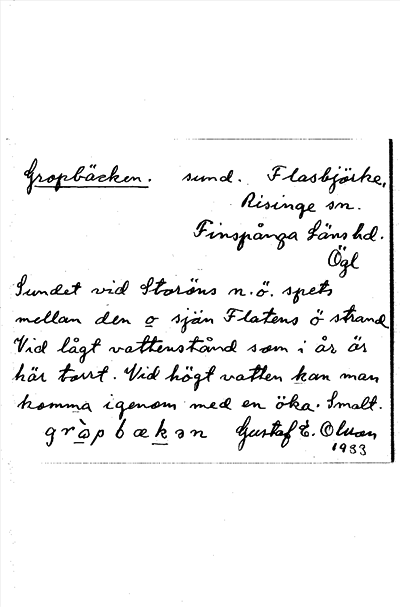 Gropbäcken. sund. Flasbjörke,
Risinge sn.
Finspånga Läns hd.
Ögl
Sundet vid Storöns n.ö. spets
mellan den o sjän Flatens ö strand
Vid lågt vattenstånd som i år är
här torrt. Vid högt vatten kan man
komma igenom med en öka. Smalt.
gròpbækən Gustaf E. Olsson
1933